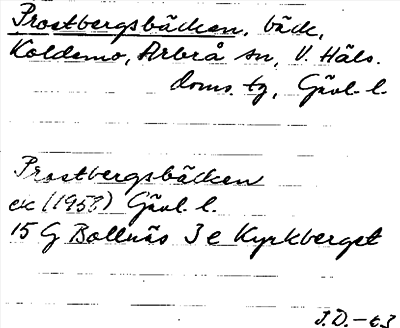 Prostbergsbäcken, bäck,
Koldemo, Arbrå sn, V. Häls.
doms. tg, Gävl. l.
Prostbergsbäcken
ek (1958) Gävl. l.
15 G Bollnäs 3 e Kyrkberget
J.D. - 63